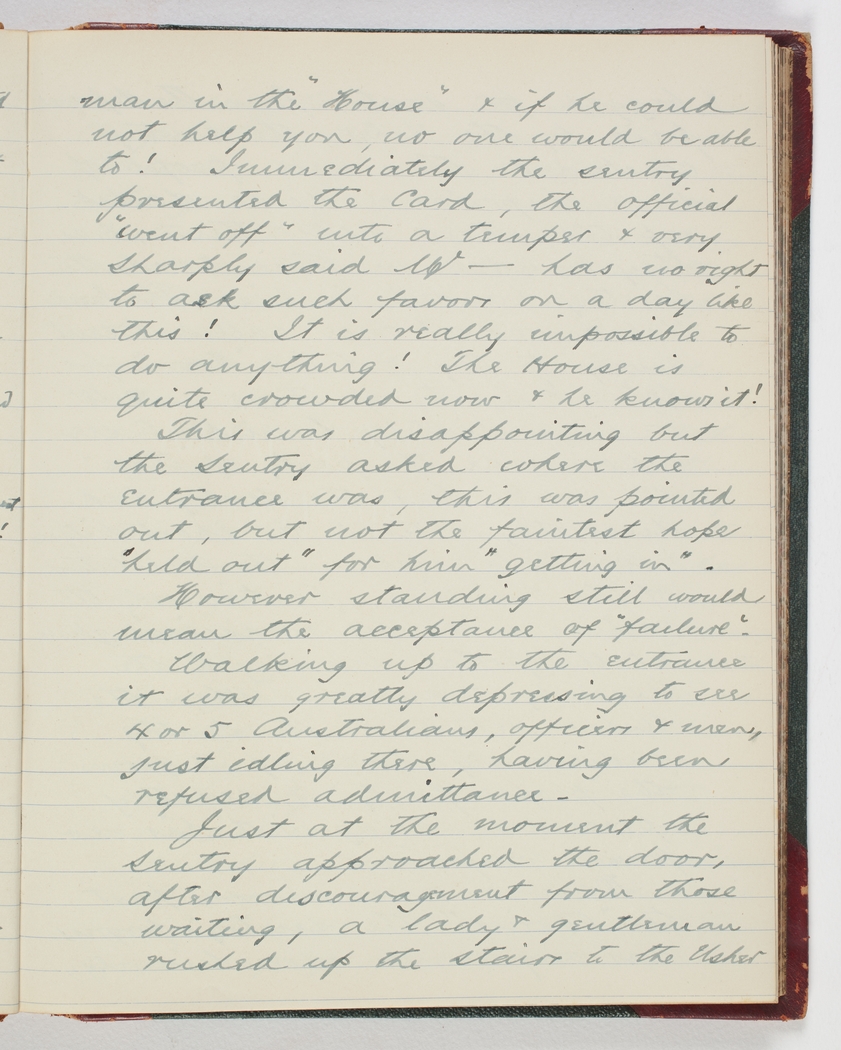 man in the "House" & if he could
not help you, no one would be able
to! Immediately the sentry
presented the Card, the official
"went off" into a temper & very
sharply said Mr — has no right
to ask such favors on a day like
this! It is really impossible to
do anything! The House is
quite crowded now & he knows it!
This was disappointing but
the sentry asked where the
entrance was, this was pointed
out, but not the faintest hope
"held out" for him "getting in".
However standing still would
mean the acceptance of "failure".
Walking up to the entrance
it was greatly depressing to see
4 or 5 Australians, officers & men,
just idling there, having been
refused admittance -
Just at the moment the
sentry approached the door,
after discouragment from those
waiting, a lady & gentleman
rushed up the stairs to the Usher